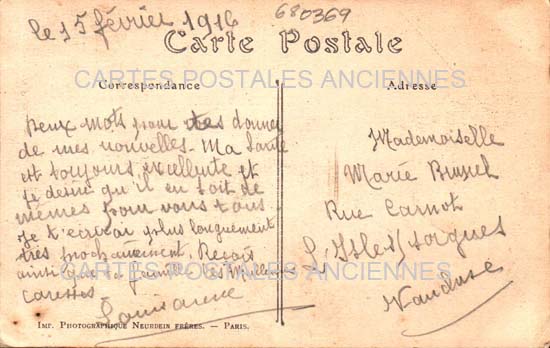 le 15 février 1916
680369
Carte Postale
CARTES POSTALES ANCIENNES
Correspondance
Adresse
Deux mots pour donner
de mes nouvelles. Ma Santé
est toujours excellente et
je désire qu'il en soit de
mêmes pour vous tous.
Je t'écrirai plus longuement
très prochainement. Reçois
ainsi que ta famille les Meilleures
caresses
Mademoiselle
Marie
Rue Carnot
L'Isle s/ Sorgues
Vaucluse
CARTES POSTALES ANCIENNES
Imp. Photographique Neurdein Frères. — Paris.